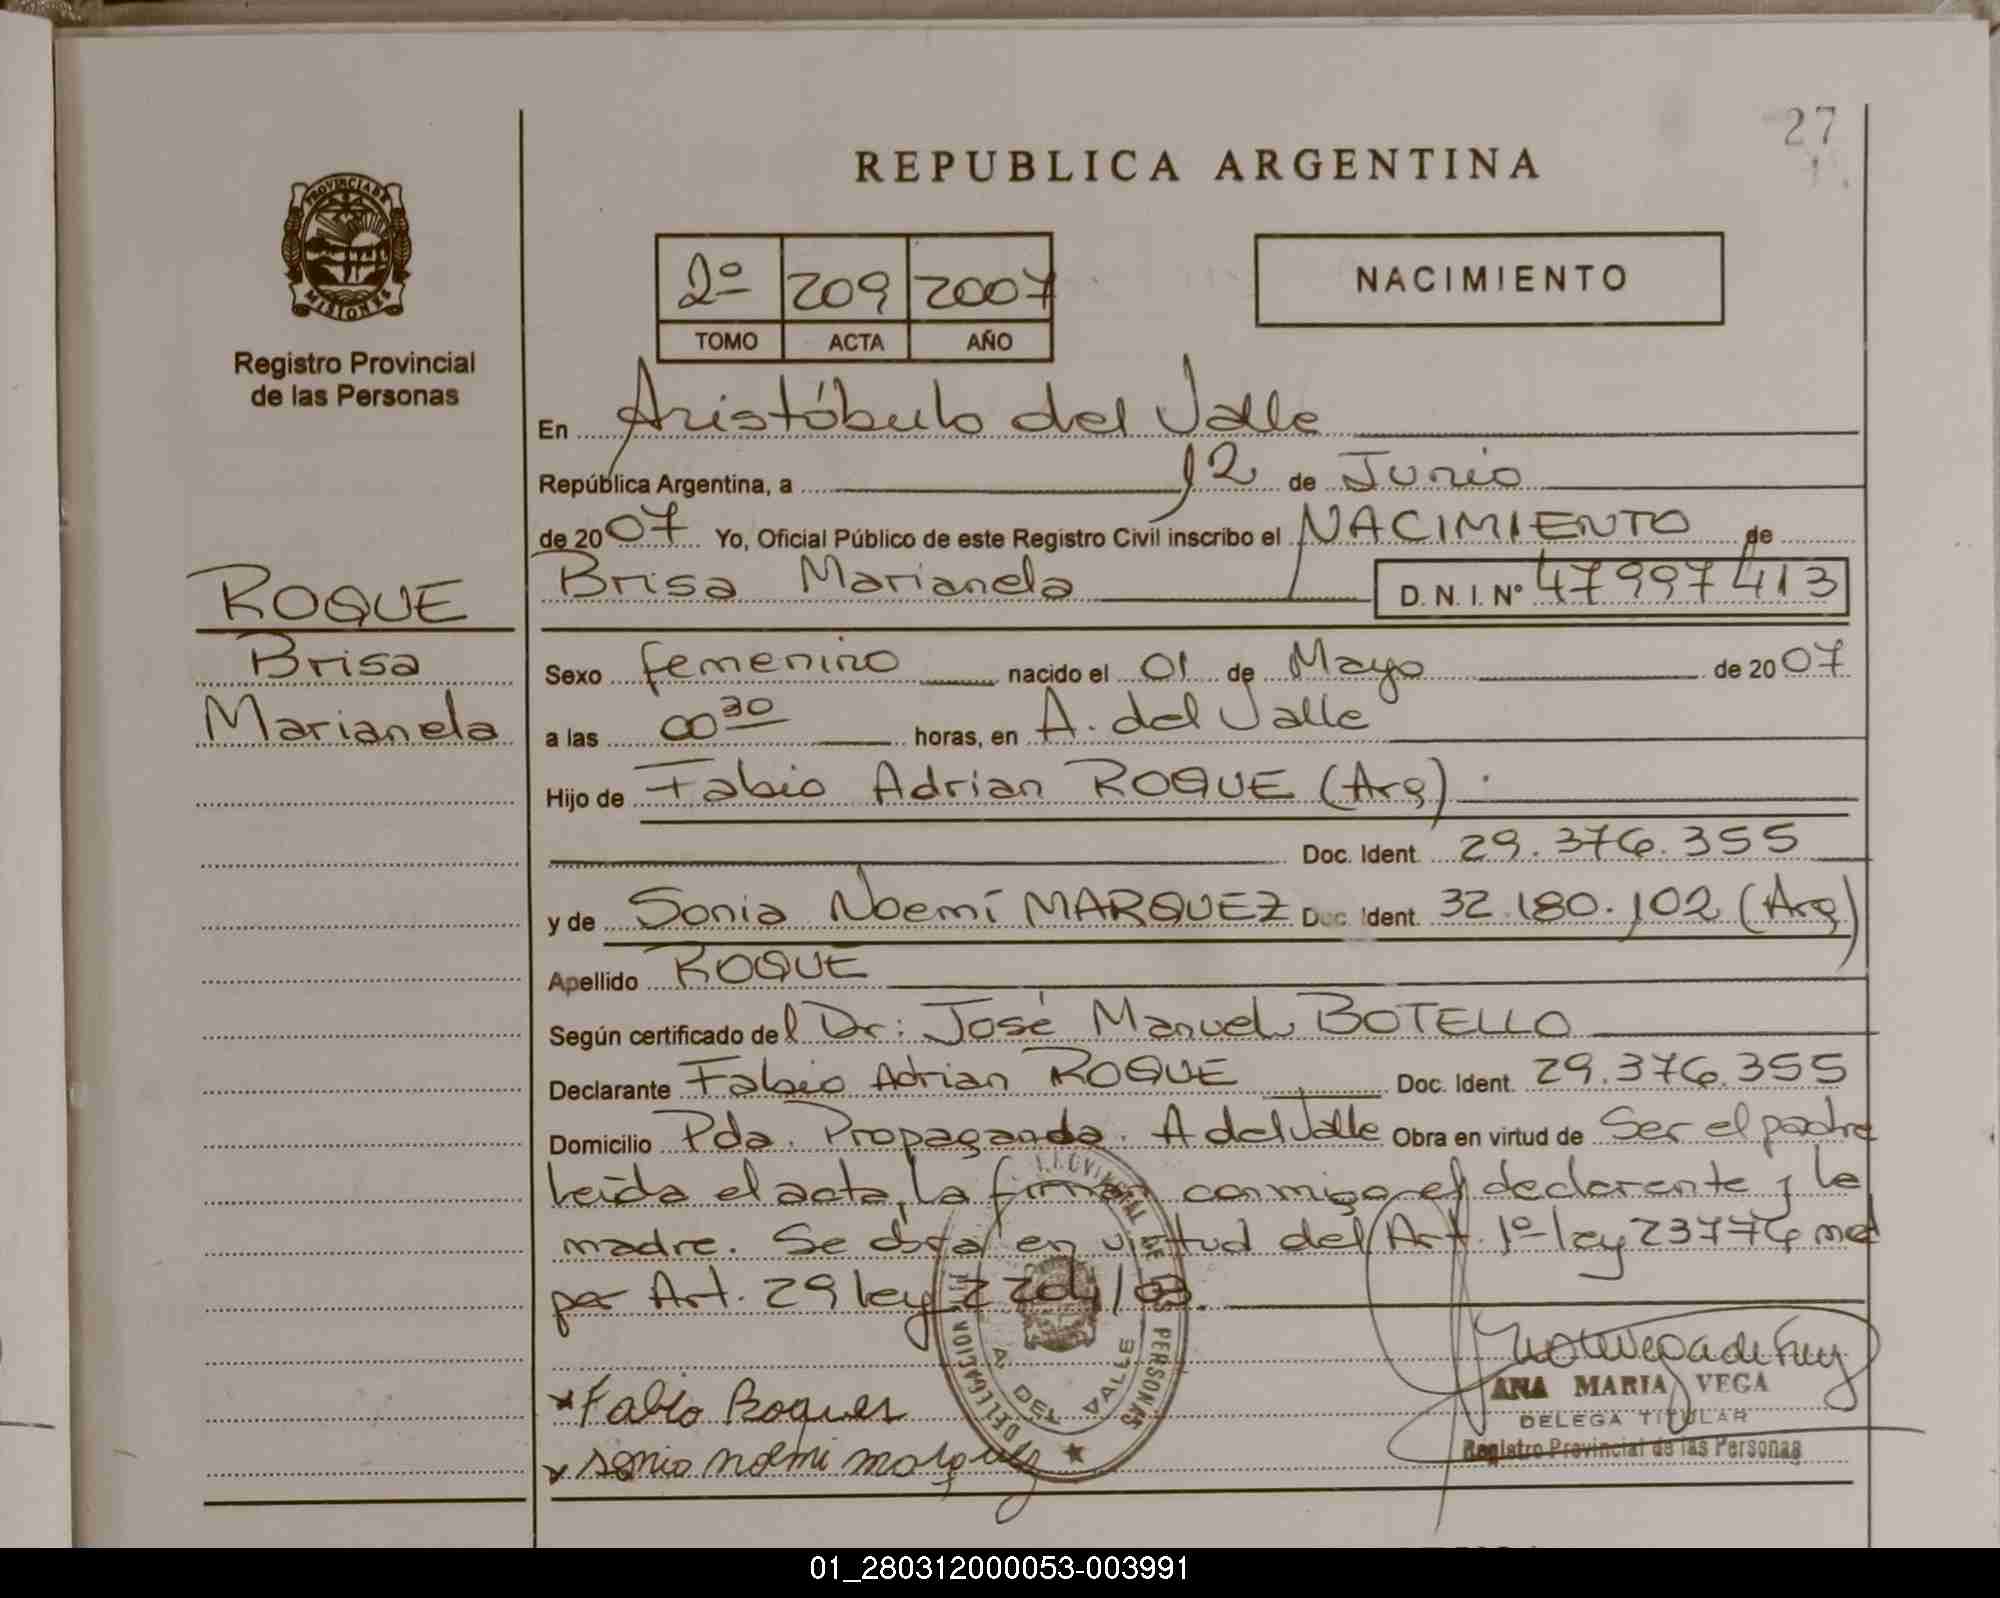 27
REPUBLICA ARGENTINA
PROVINCIA DE
MISIONES
Registro Provincial
de las Personas
2º 209 2007
TOMO ACTA AÑO
NACIMIENTO
En Aristóbulo del Valle
República Argentina, a 12 de Junio
de 2007 Yo, Oficial Público de este Registro Civil inscribo el NACIMIENTO de
Brisa Marianela D.N.I. Nº 47997413
ROQUE
Brisa
Marianela
Sexo femenino nacido el 01 de Mayo de 2007
a las 00 30 horas, en A. del Valle
Hijo de Fabio Adrian ROQUE (Arg)
Doc. Ident. 29.376.355
y de Sonia Noemí MARQUEZ Doc. Ident. 32.180.102 (Arg)
Apellido ROQUE
Según certificado del Dr: José Manuel BOTELLO
Declarante Fabio Adrian ROQUE Doc. Ident. 29.376.355
Domicilio Pda. Propaganda. A del Valle Obra en virtud de Ser el padre
Leída el acta, la firman conmigo el declarante y la
madre. Se obra en virtud del Art. 1º ley 23776 mod
por Art. 29 ley /03.
PROVINCIAL DE LAS PERSONAS
DELEGACION
A. DEL VALLE
Fabio Roques
sonia noemi marquez
ANA MARIA VEGA
DELEGA TITULAR
Registro Provincial de las Personas
01_280312000053-003991